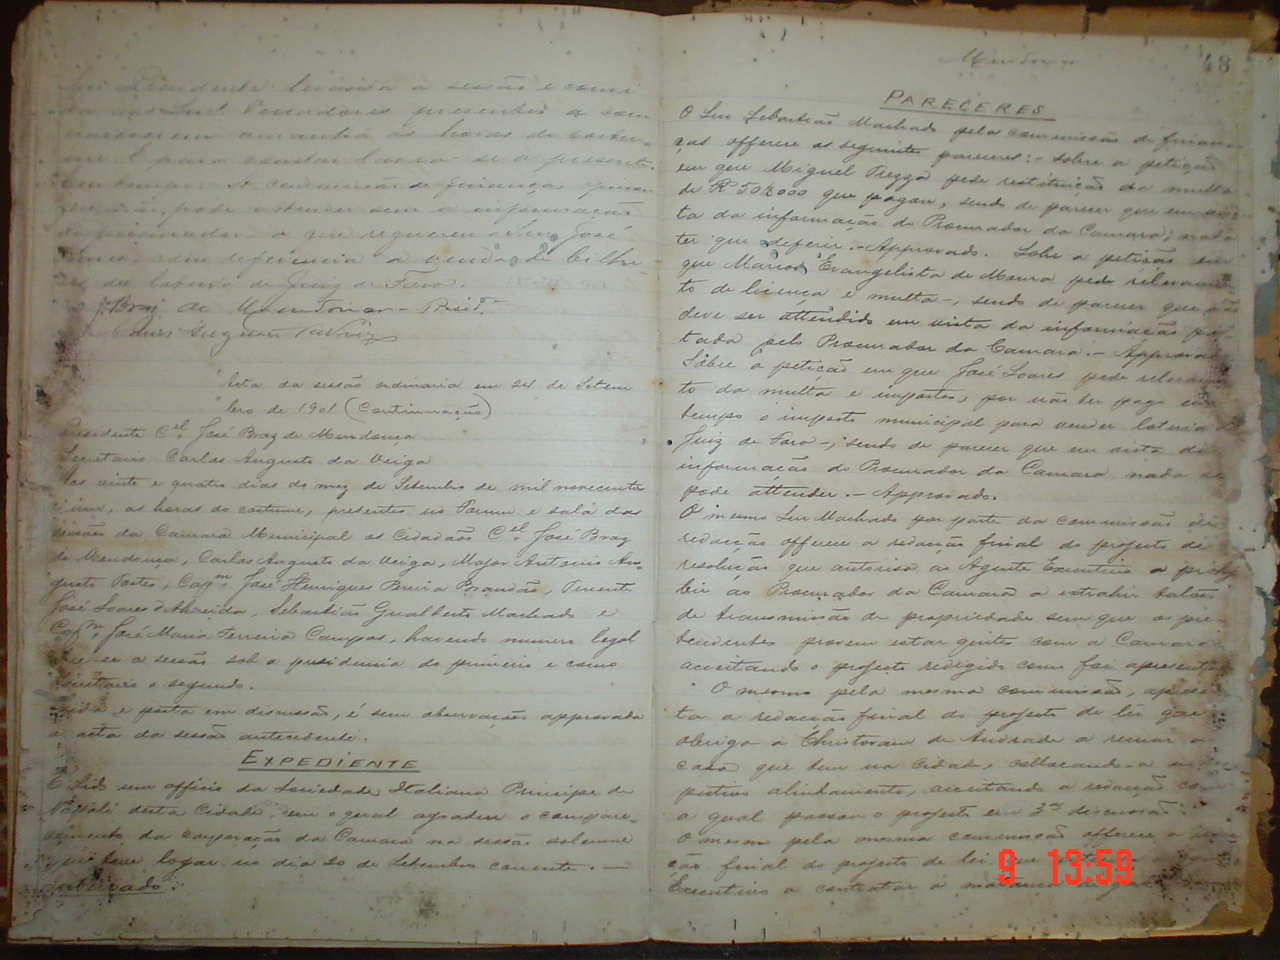 Snr Presidente levanta a sessão e convi
da aos Snrs Vereadores presentes a com
parecerem amanhã as horas do costu-
me. E para constar lavra-se a presente.
Em tempo: A commissão de finanças
não pode attender sem a informação
do procurador o que requereu o Snr José
com referencia a venda de bilhe-
tes da loteria de Juiz de Fora.
J. Braz de Mendonça - Presid.e
Carlos Augusto da Veiga
Acta da sessão ordinaria em 24 de Setem
bro de 1901 (Continuação)
Presidente C.el José Braz de Mendonça
Secretario Carlos Augusto da Veiga
Aos vinte e quatro dias do mez de Setembro de mil novecentos
e um, as horas do costume, presentes no Forum e sala das
sessões da Camara Municipal os Cidadãos C.el José Braz
de Mendonça, Carlos Augusto da Veiga, Major Antonio Au-
gusto Fortes, Cap.m José Henriques Brandão, Tenente
José Soares d'Almeida, Sebastião Gualberto Machado e
Cap.m José Maria Ferreira Campos, havendo numero legal
abre-se a sessão sob a presidencia do primeiro e como
secretario o segundo.
Lida e posta em discussão, é sem observações approvada
a acta da sessão antecedente.
EXPEDIENTE
É lido um officio da Sociedade Italiana Principe de
Napoli desta Cidade, em o qual agradece o compare-
cimento da Corporação da Camara na sessão solemne
que teve logar no dia 20 de Setembro corrente. —
Inteirado.
48
PARECERES
O Snr Sebastião Machado pela commissão de finan
ças offerece os seguintes pareceres: - sobre a petição
em que Miguel Trezza pede restituição da multa
de R. 50$000 que pagou, sendo de parecer que em vis-
ta da informação do Procurador da Camara, nada
ter que deferir. - Approvado. Sobre a petição em
que Marcos Evangelista de Moura pede relevamen
to de licença e multa -, sendo de parecer que não
deve ser attendido em vista da informação pres
tada pelo Procurador da Camara. - Approvado
Sobre a petição em que José Soares pede relevamen
to da multa e impostos, por não ter pago em
tempo o imposto municipal para vender loteria de
Juiz de Fora -, sendo de parecer que em vista da
informação do Procurador da Camara nada se
pode attender. - Approvado.
O mesmo Snr Machado por parte da commissão de
redacção offerece a redacção final do projecto de
resolução que autorisa ao Agente Executivo a prohi
bir ao Procurador da Camara a extrahir talão
de transmissão de propriedade sem que os pre-
tendentes provem estar quites com a Camara
acceitando o projecto redigido como foi apresenta
O mesmo pela mesma commissão, apresen
ta a redacção final do projecto de lei que
obriga a Christovam de Andrade a recuar a
casa que tem na Cidade, collocando-a no
alinhamento, acceitando a redacção com
a qual passou o projecto em 3ª discussão.
O mesmo pela mesma commissão offerece a redac
ção final do projecto de lei que
Executivo a contratar a
9 13:59